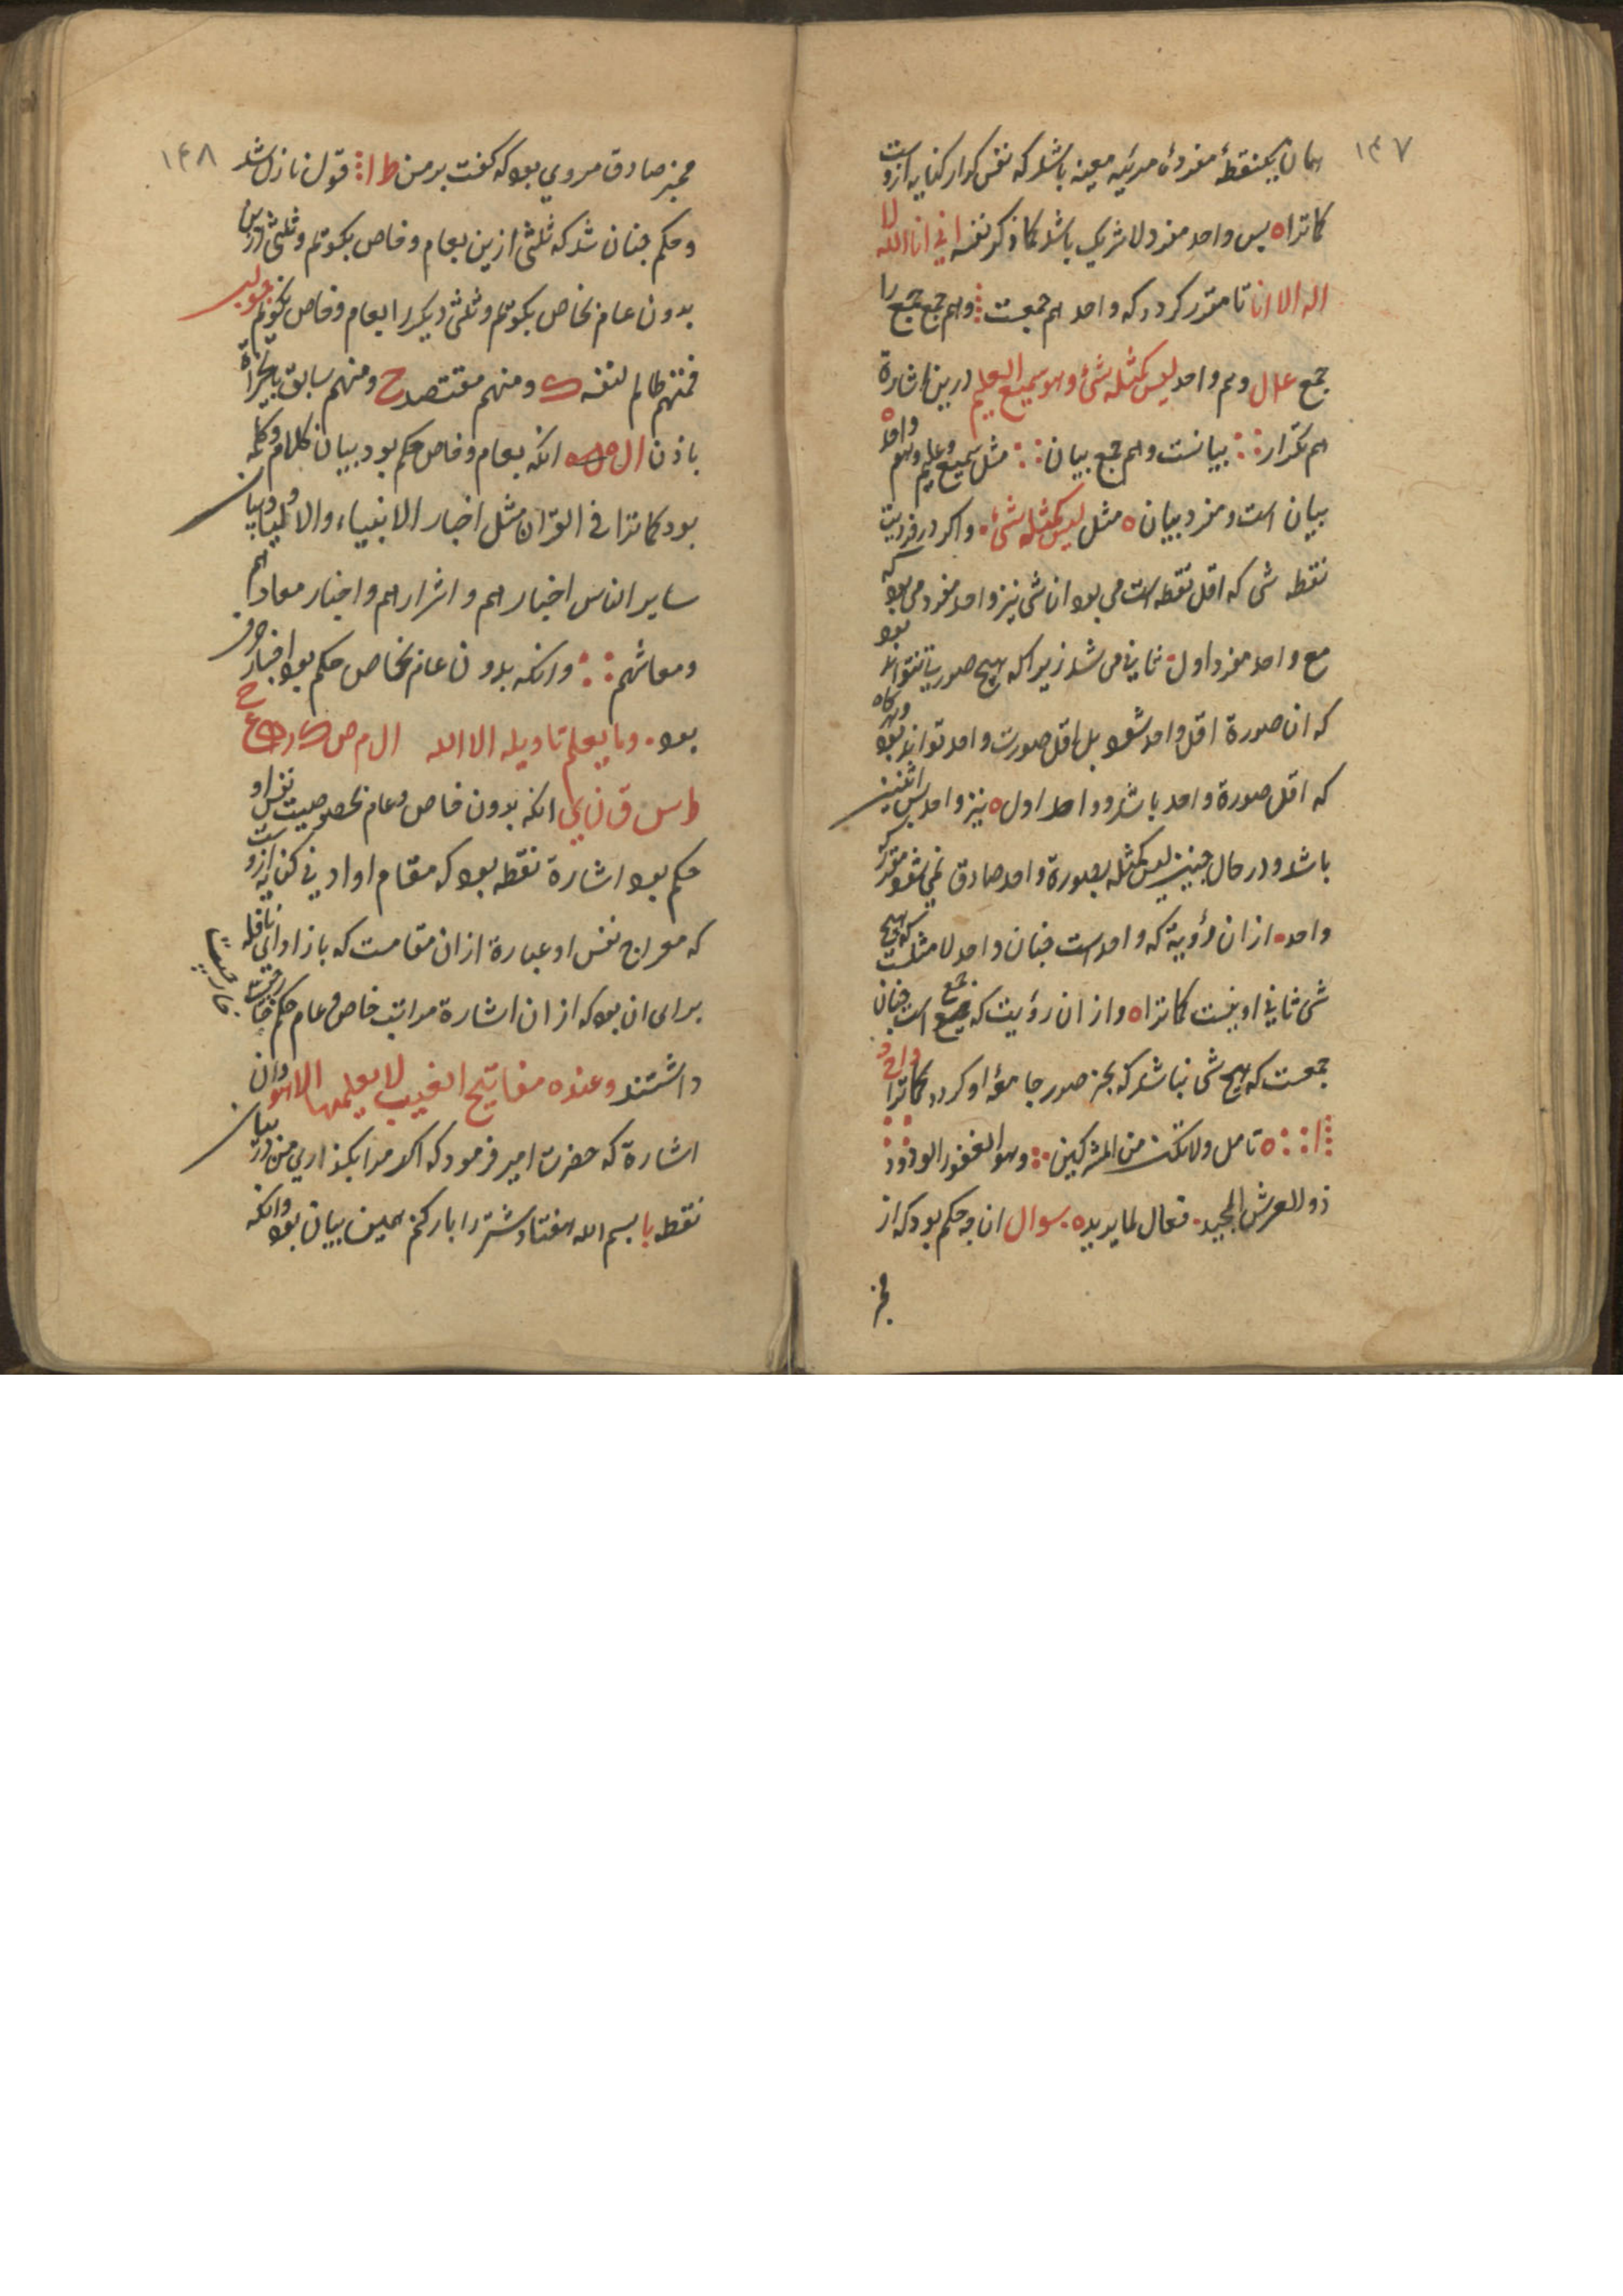 ۱۴۷
همان یکنقطهٔ مفردهٔ مرئیه معینه باشد که نفس کرار کنایه ازوست
کماترا ه پس واحد مفرد لا شریک باشد کما ذکر نفسه انی انا الله لا
اله الا انا تا مقرر کردد که واحد هم جمعست وهم جمع جمع را
جمع علل وهم واحد لیس کمثله شیٔ وهو سمیع العلیم درین اشارة
هم تکرار بیانست وهم جمع بیان مثل سمیع وعلیم وهو واحد
بیان است ومفرد بیان ه مثل لیس کمثله شیٔ واکر در فردیت
نقطه شی که اقل نقطه است می بود ان شی نیز واحد مفرد می بود که
مع واحد مفرد اول ثانی می شد زیرا که هیچ صورت نتواند بود
که ان صورة اقل واحد شود بل اقل صورت واحد تواند بود وهرکاه
که اقل صورة واحد باشد وواحد اول ه نیز واحد پس اثنین
باشد ودر حال چنین لیس کمثله بصورة واحد صادق نمی شود مقرر که
واحد ازان رؤیة که واحد است چنان واحد لا مثلست که هیچ
شی ثانی او نیست کماترا ه وازان رؤیت که جمع جمع است چنان
جمعست که هیچ شی نباشد که بجز صور جامعهٔ او کردد کماترا واحد
ا ه تامل ولا تکن من المشرکین وهو الغفور الودود
ذو العرش المجید فعال لما یرید ه سوال ان چه حکم بود که از
مخبر
۱۴۸
مخبر صادق مروی بود که کفت بر من ط ا قول نازل شد
وحکم چنان شد که ثلثی ازین بعام وخاص بکوتم وثلثی درین
بدون عام بخاص بکوتم وثلثی دیکر را بعام وخاص نکوتم جواب
فمنهم ظالم لنفسه ومنهم مقتصد ومنهم سابق بالخیرات
باذن ال انکه بعام وخاص حکم بود بیان کلام وکلمه
بود کماترا فی القرآن مثل اخبار الانبیاء والاولیا وبیان
سایر الناس اخیارهم واشرارهم واخبار معادهم
ومعاشهم وانکه بدون عام بخاص حکم بود اخبار حروف
بود وما یعلم تاویله الا الله ال م ص ک ر ه ع ح
ط س ق ن ی انکه بدون خاص وعام بخصوصیت نفس او
حکم بود اشارة نقطه بود که مقام او ادنی کنایه ازوست
که معراج نفس او عبارة ازان مقامست که باز او انی
برای ان بود که ازان اشارة مراتب خاص وعام حکم
داشتند وعنده مفاتیح الغیب لا یعلمها الا هو وان
اشارة که حضرت امیر فرمود که اکر مرا بکذاری من در بیان
نقطه با بسم الله هفتاد شتر را بار کنم همین بیان بود وانکه